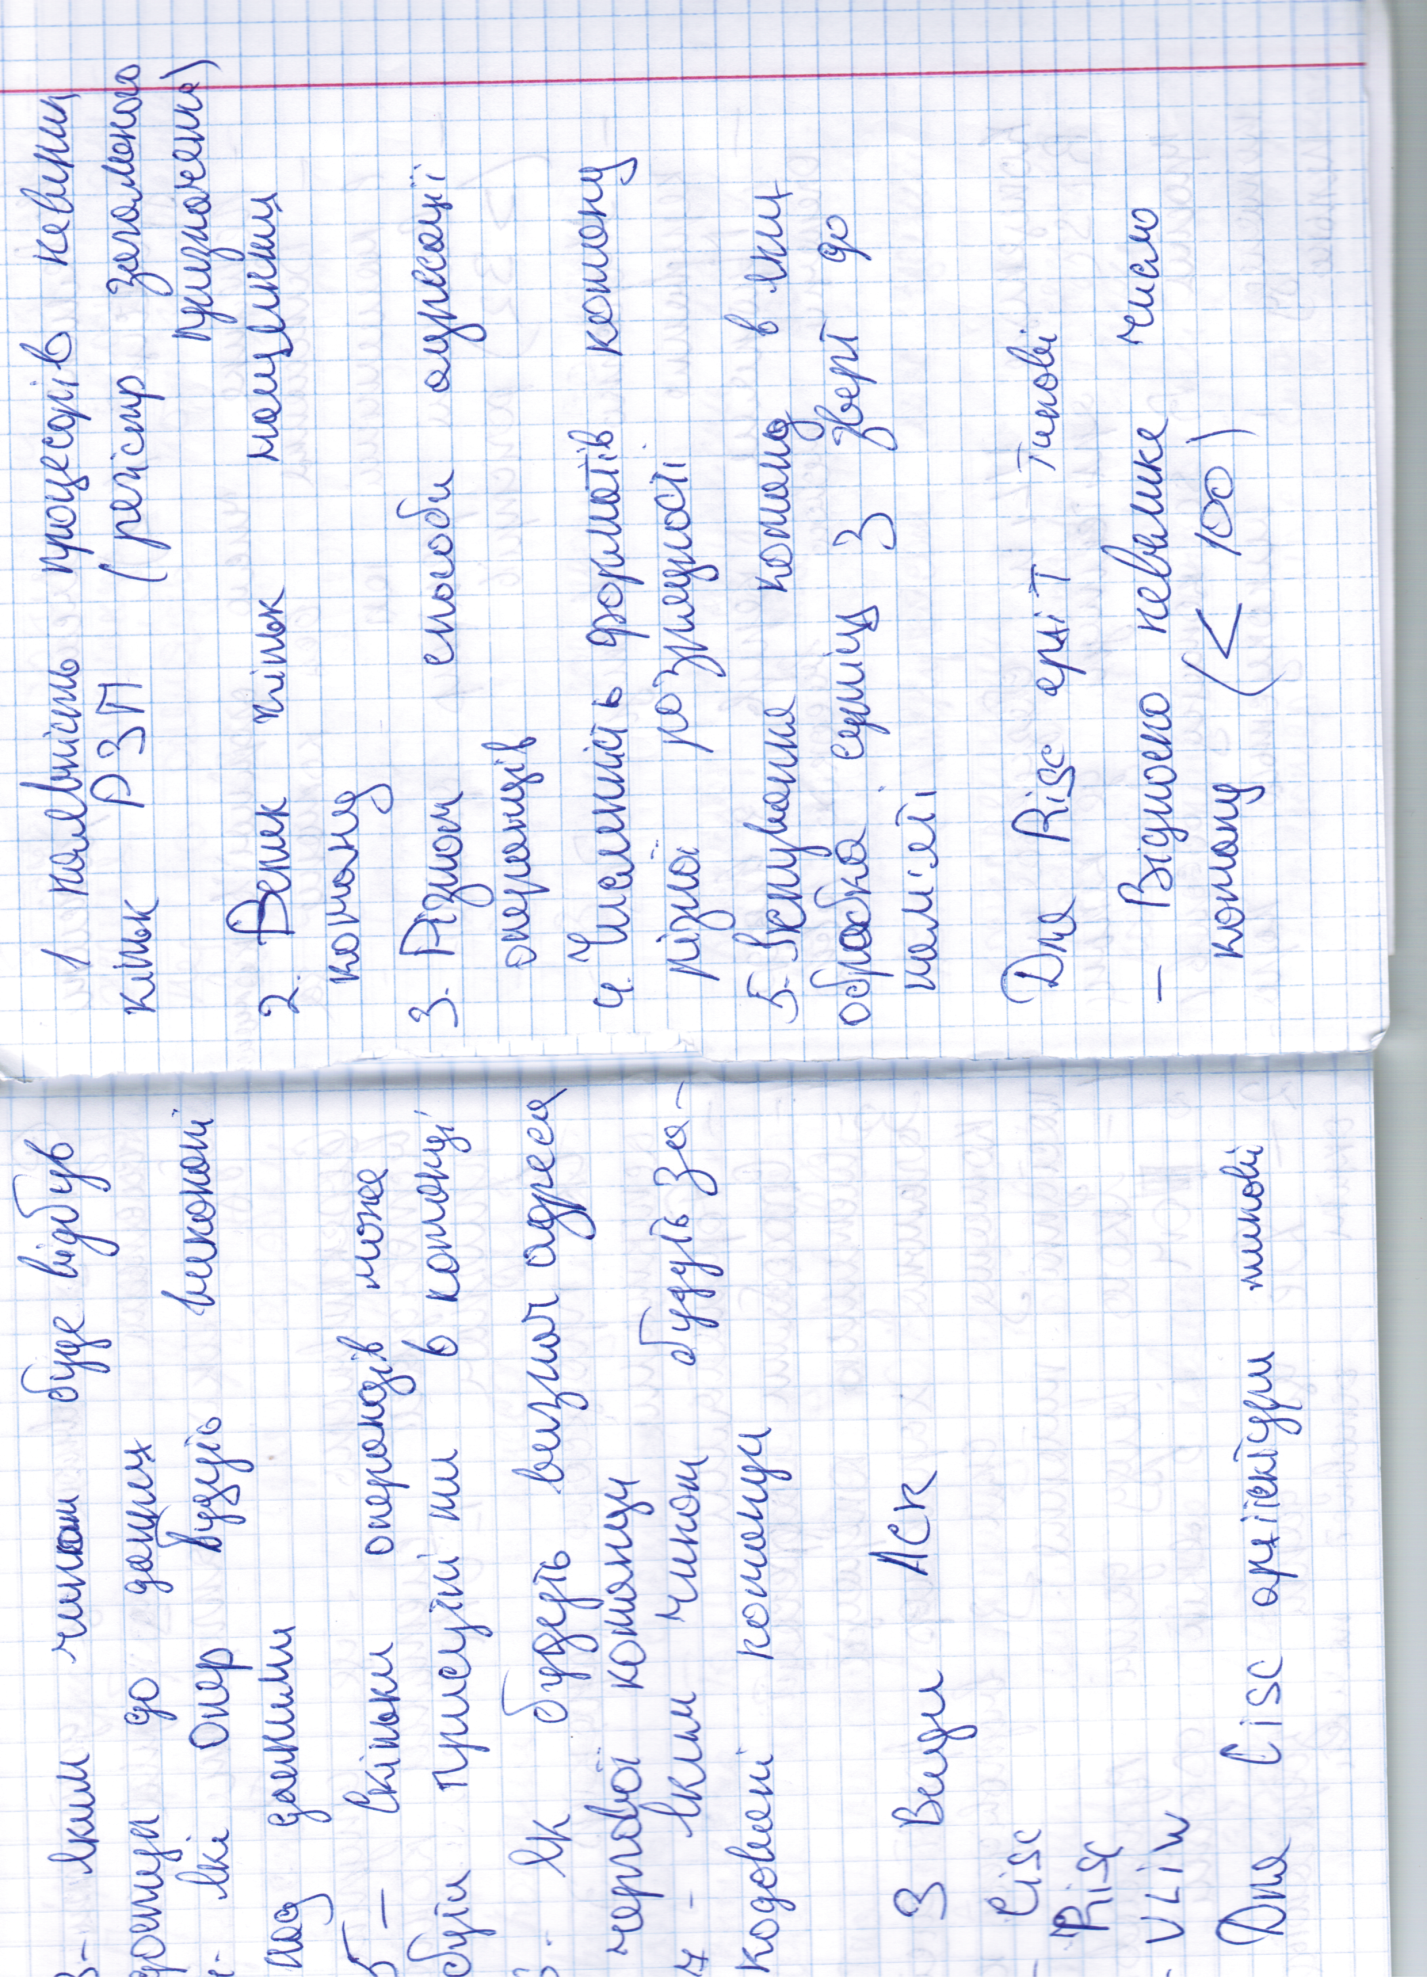 3- яким чином буде відбув
доступ до даних
4- які опер будуть виконані
над даними
5 - Скільки операндів може
бути присутні ми в команді
6- як будуть визнач адреса
чергової команди
7 - яким чином будуть за-
кодовані команди
3 Види АСК
- Cisc
- Risc
- VLiW
Для Cisc архітектури типові
1 наявність процесорів невелик
кільк РЗП (регістр загального
призначення)
2. Велик кільк машинних
команд
3. Різном способи адресації
операндів
4. Численність форматів команд
різної розрядності
5. Існування команд в яких
обробка суміщ з зверт до
пам'яті
Для Risc архіт типові
- Відносно невелике число
команд (< 100)